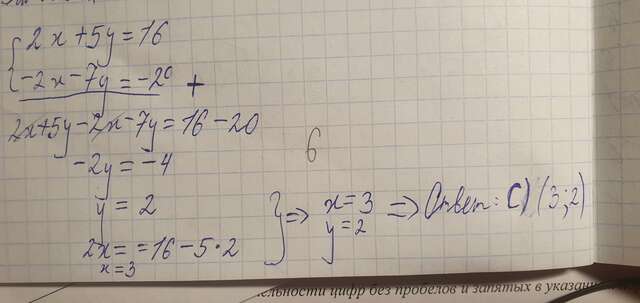 2x+5y=16
-2x-7y=-20 +
2x+5y-2x-7y=16-20
-2y=-4
6
y=2
2x= =16-5·2
x=3
} => x=3
y=2
=> Ответ: C) (3;2)
ельности цифр без пробелов и запятых в указан